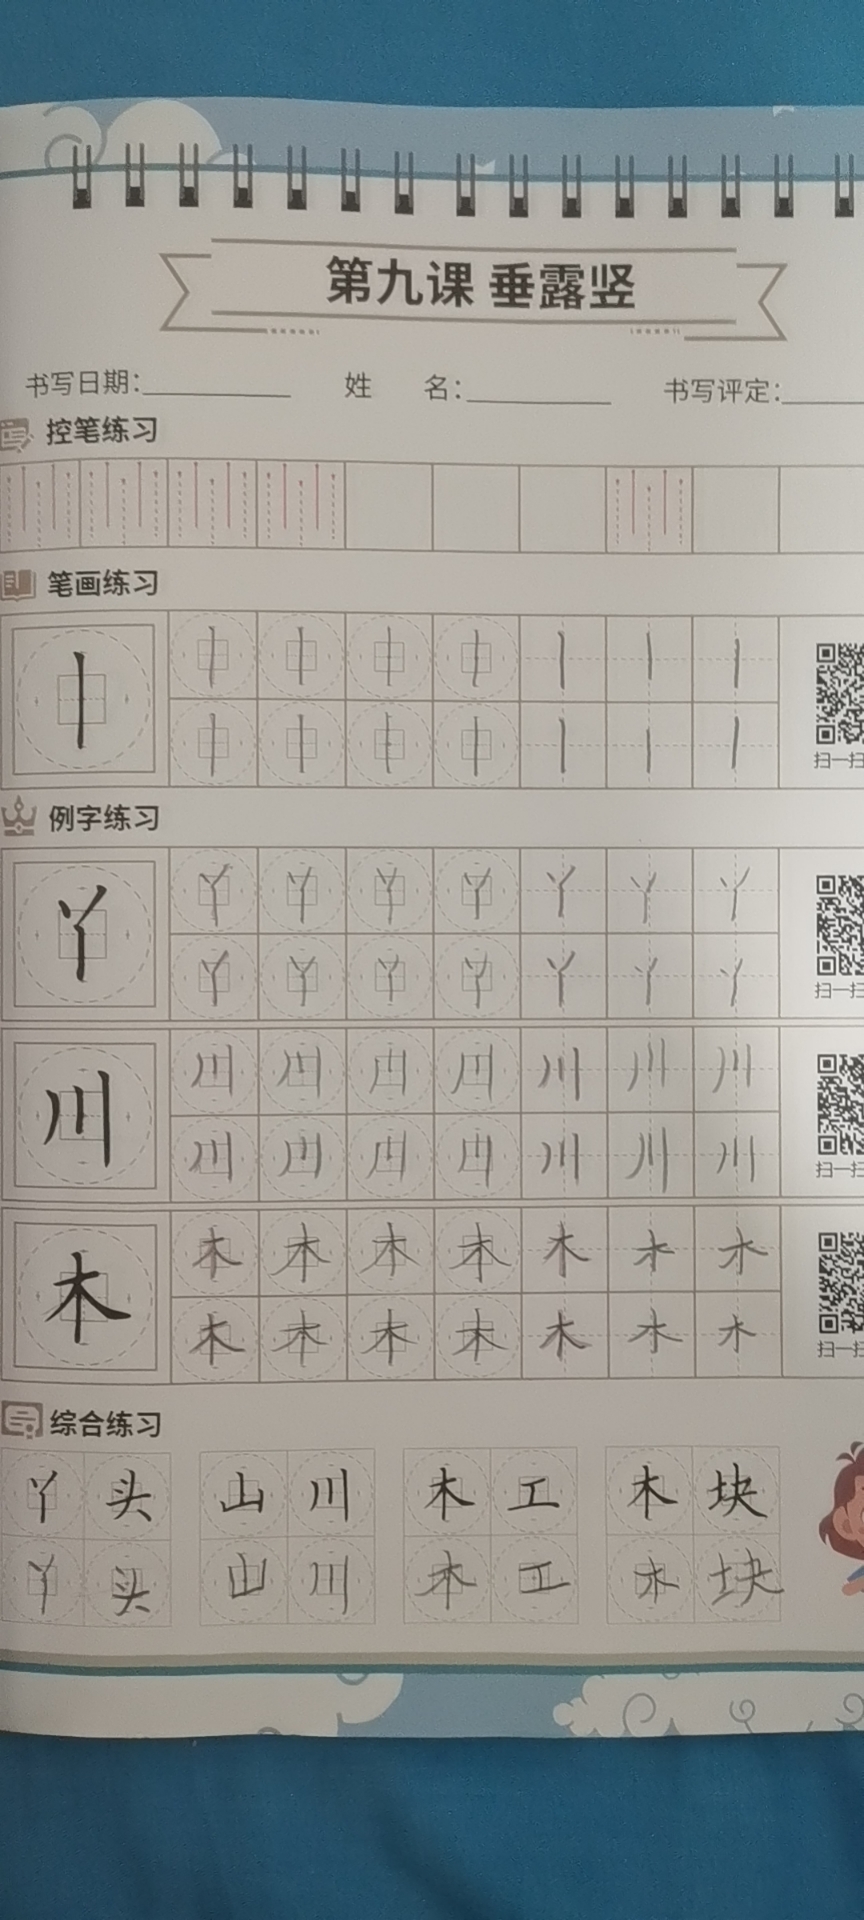 第九课 垂露竖
书写日期： 姓 名： 书写评定：
控笔练习
笔画练习
扫一扫
例字练习
丫 丫 丫 丫 丫 丫 丫 丫
丫 丫 丫 丫 丫 丫 丫
扫一扫
川 川 川 川 川 川 川 川
川 川 川 川 川 川 川
扫一扫
木 木 木 木 木 木 木 木
木 木 木 木 木 木 木
扫一扫
综合练习
丫头 山川 木工 木块
丫头 山川 木工 木块